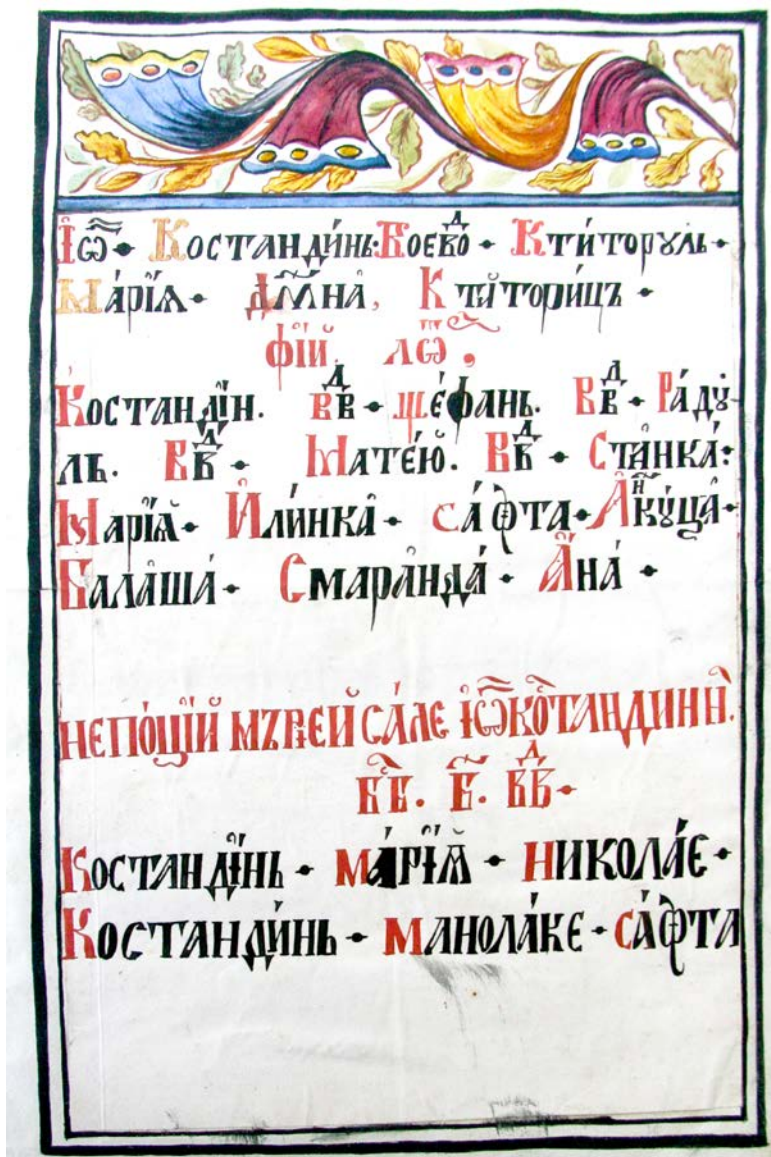 Іѡ҃ • Костандинь: Воевоⷣ • Ктиторꙋль •
Маріꙗ • Дм҃на, Ктиториць •
фїй лѡⷬ҇,
Костандїн. Вⷣв • Щефань. Вⷣв • Радꙋ-
ль. Вⷣв • Матею. Вⷣв • Станка:
Маріꙗ • Илинка • Сафта • Аⷩкꙋца •
Балаша • Смаранда • Ана •
Непоцїй мъріей сале Іѡ҃ Коⷭ҇тандинⷩ.
Б. Вⷣв •
Костандїнь • Марїꙗ • Николае •
Костандинь • Манолаке • Сафта